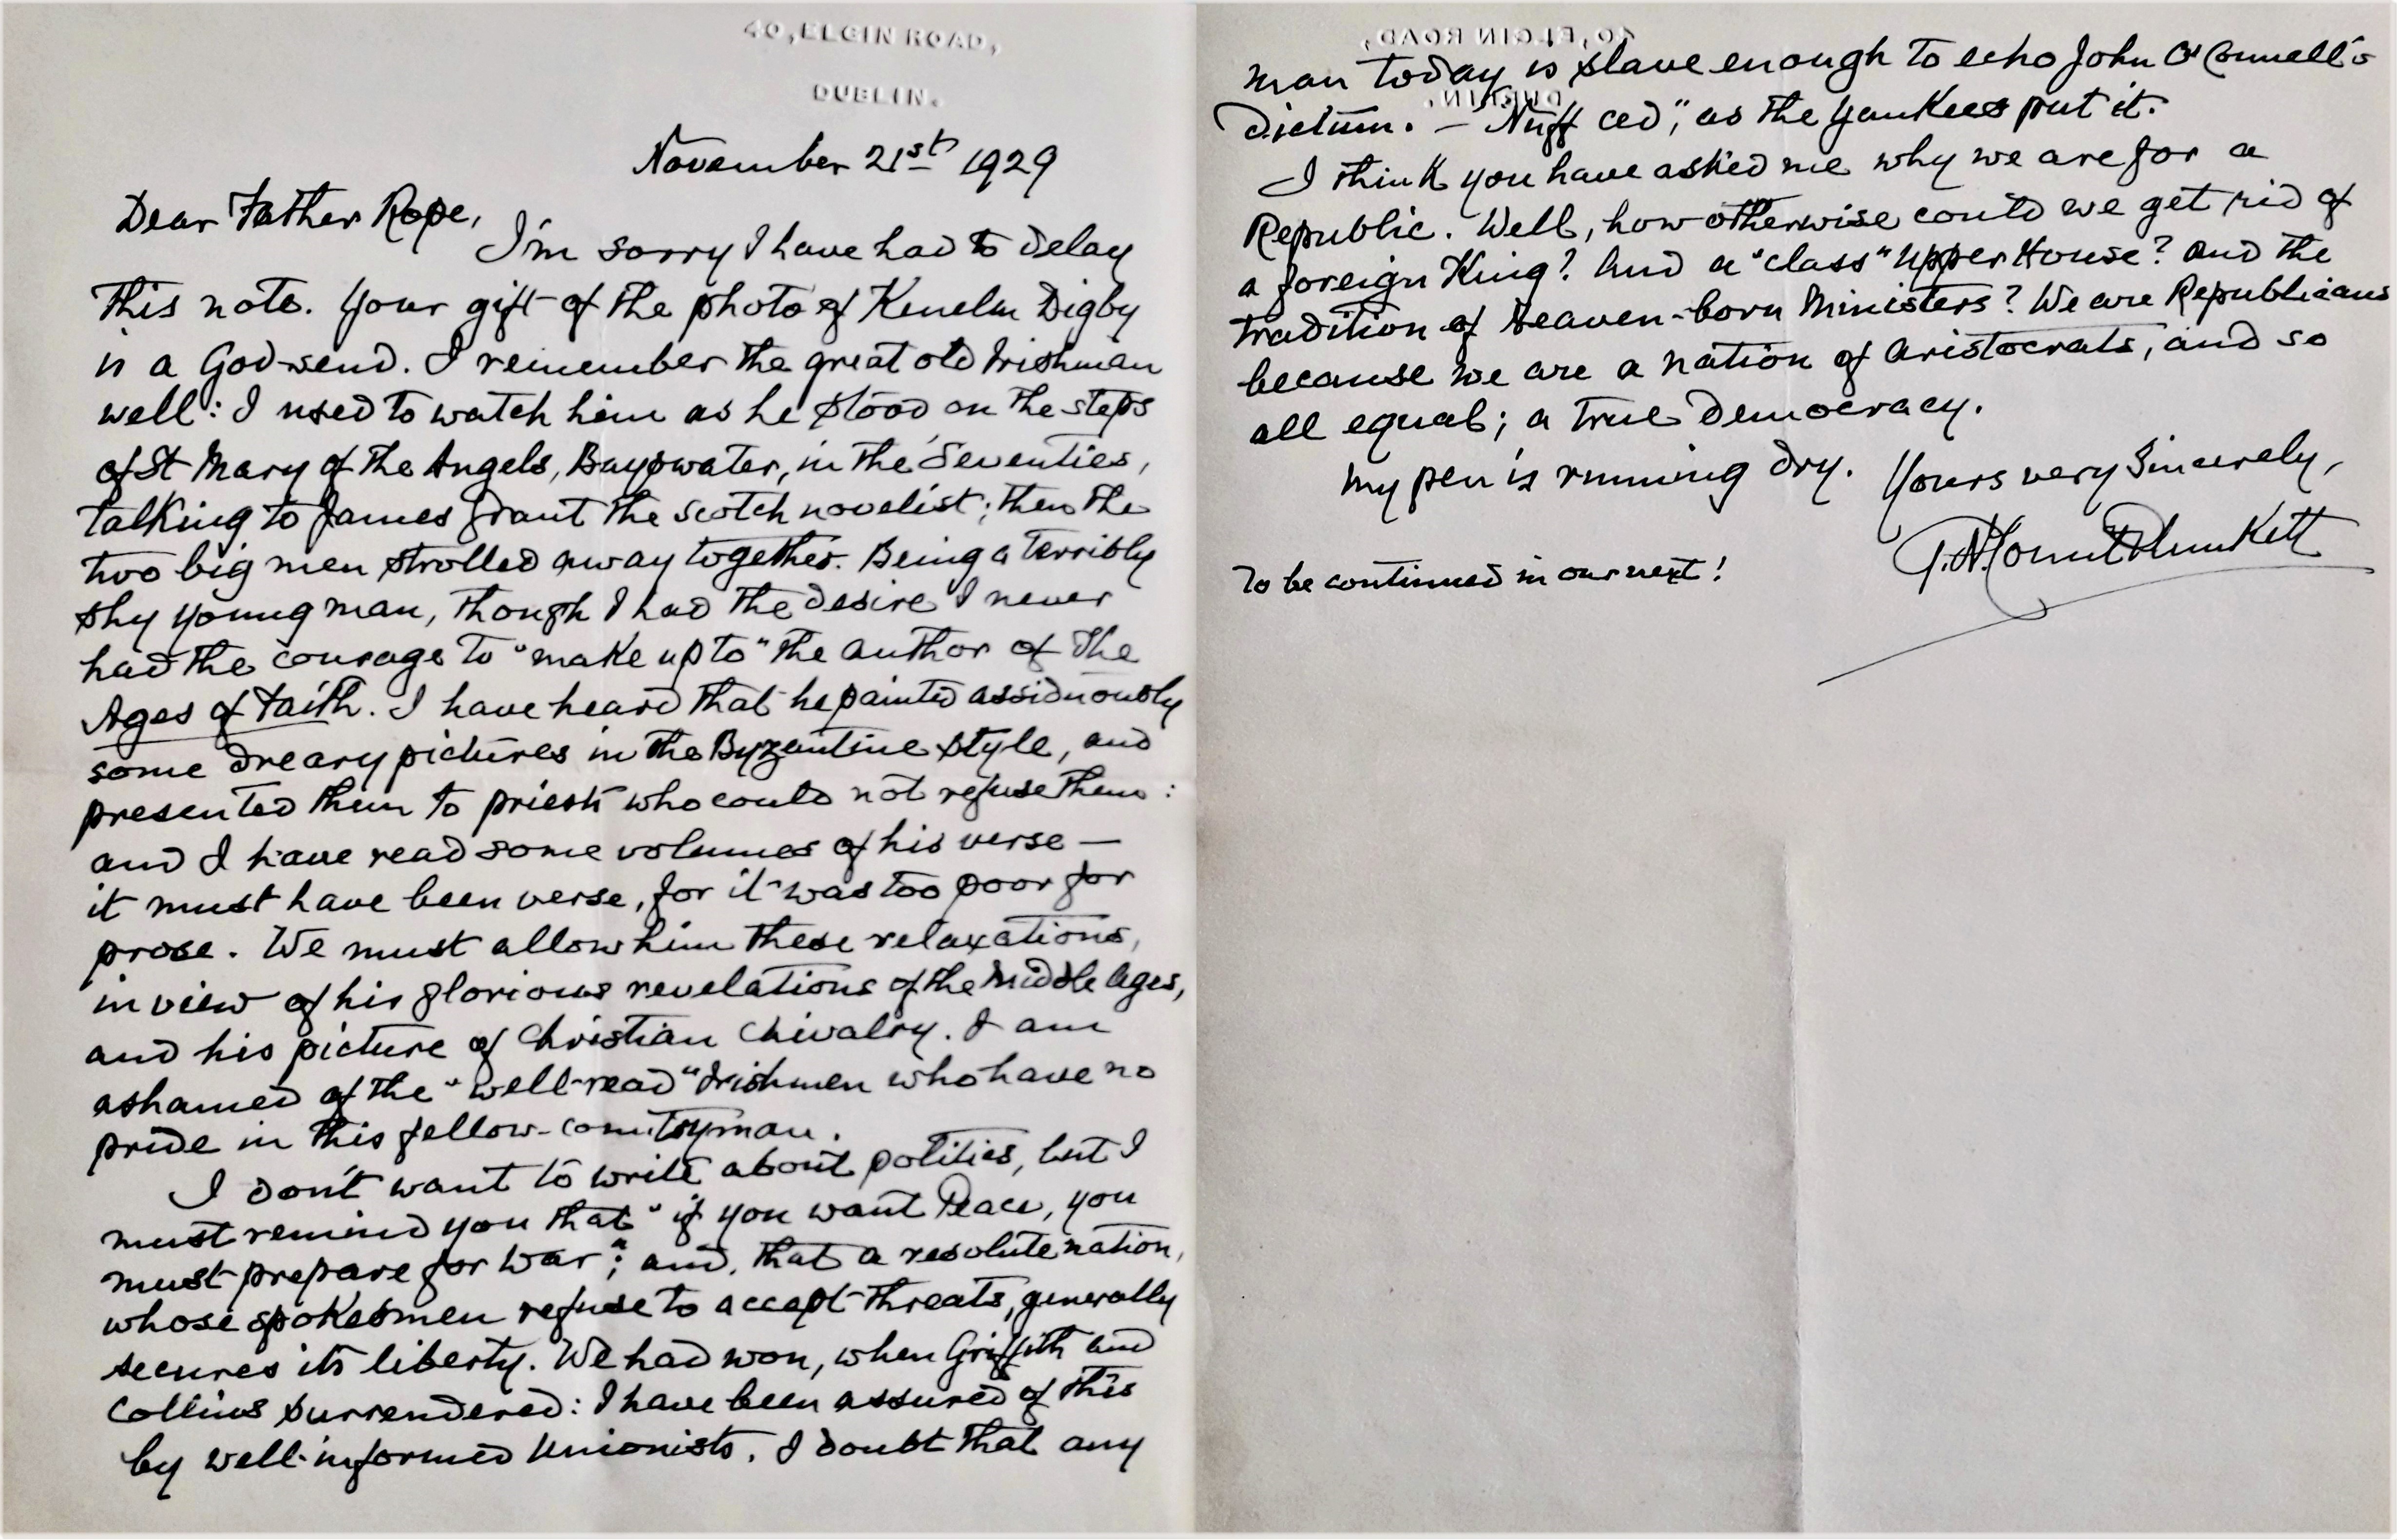 40, ELGIN ROAD,
DUBLIN.
November 21st 1929
Dear Father Rope,
I'm sorry I have had to delay
this note. Your gift of the photo of Kenelm Digby
is a God-send. I remember the great old Irishman
well: I used to watch him as he stood on the steps
of St Mary of the Angels, Bayswater, in the 'Seventies,
talking to James Grant the Scotch novelist; then the
two big men strolled away together. Being a terribly
shy young man, though I had the desire I never
had the courage to "make up to" the author of The
Ages of Faith. I have heard that he painted assiduously
some dreary pictures in the Byzantine style, and
presented them to priests who could not refuse them:
and I have read some volumes of his verse —
it must have been verse, for it was too poor for
prose. We must allow him these relaxations,
in view of his glorious revelations of the Middle Ages,
and his picture of Christian Chivalry. I am
ashamed of the "well-read" Irishmen who have no
pride in this fellow-countryman.
I don't want to write about politics, but I
must remind you that "if you want Peace, you
must prepare for war"; and, that a resolute nation,
whose spokesmen refuse to accept threats, generally
secures its liberty. We had won, when Griffith and
Collins surrendered: I have been assured of this
by well-informed Unionists. I doubt that any
40, ELGIN ROAD,
DUBLIN.
man today is slave enough to echo John O'Connell's
dictum. — "Nuff ced", as the Yankees put it.
I think you have asked me why we are for a
Republic. Well, how otherwise could we get rid of
a foreign King? And a "class" Upper House? And the
tradition of Heaven-born Ministers? We are Republicans
because we are a nation of aristocrats, and so
all equal; a true Democracy.
My pen is running dry. Yours very sincerely,
G.N. Count Plunkett
To be continued in our next!